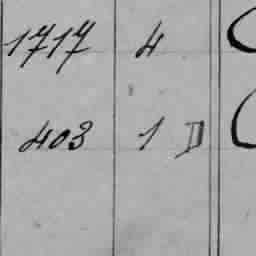 1717 4
403 1 D